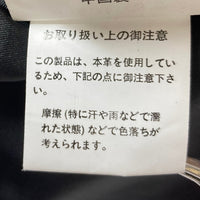 お取り扱い上の御注意
この製品は、本革を使用してい
るため、下記の点に御注意下さ
い。
摩擦 (特に汗や雨などで濡
れた状態) などで色落ちが
考えられます。